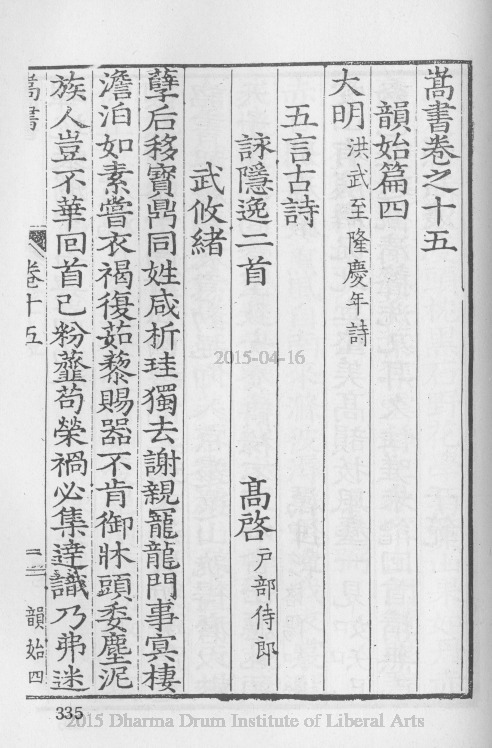 嵩書卷之十五
韻始篇四
大明洪武至隆慶年詩
五言古詩
詠隱逸二首 高啓戶部侍郎
武攸緒
孽后移寶鼎同姓咸析珪獨去謝親寵龍門事冥棲
澹泊如素嘗衣褐復茹藜賜器不肯御牀頭委塵泥
族人豈不華回首已粉虀苟榮禍必集達識乃弗迷
嵩書 卷十五 二 韻始四
335
2015-04-16
2015 Dharma Drum Institute of Liberal Arts